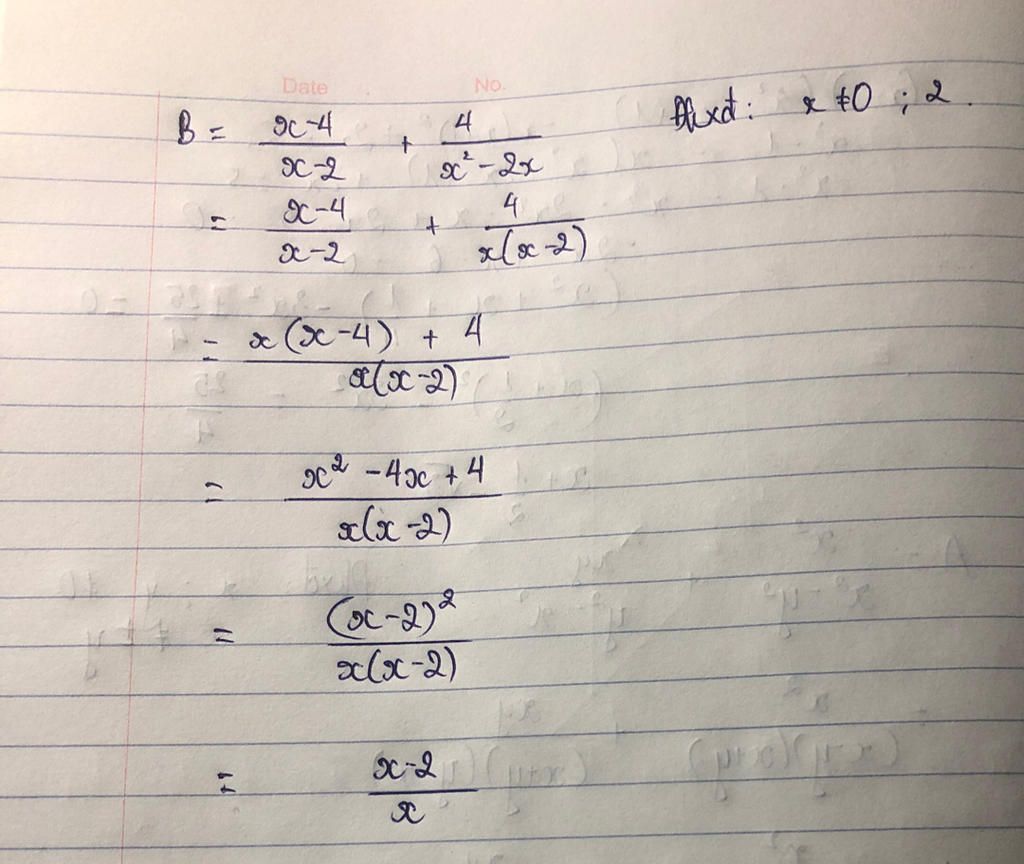 Date No.
B = \frac{x-4}{x-2} + \frac{4}{x^2-2x} Đkxđ: x ≠ 0 ; 2.
= \frac{x-4}{x-2} + \frac{4}{x(x-2)}
= \frac{x(x-4) + 4}{x(x-2)}
= \frac{x^2-4x+4}{x(x-2)}
= \frac{(x-2)^2}{x(x-2)}
= \frac{x-2}{x}